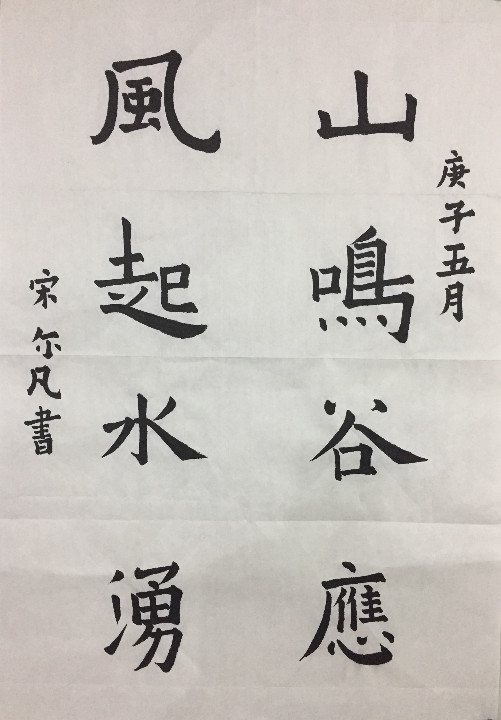 庚子五月
山鳴谷應
風起水湧
宋尔凡書